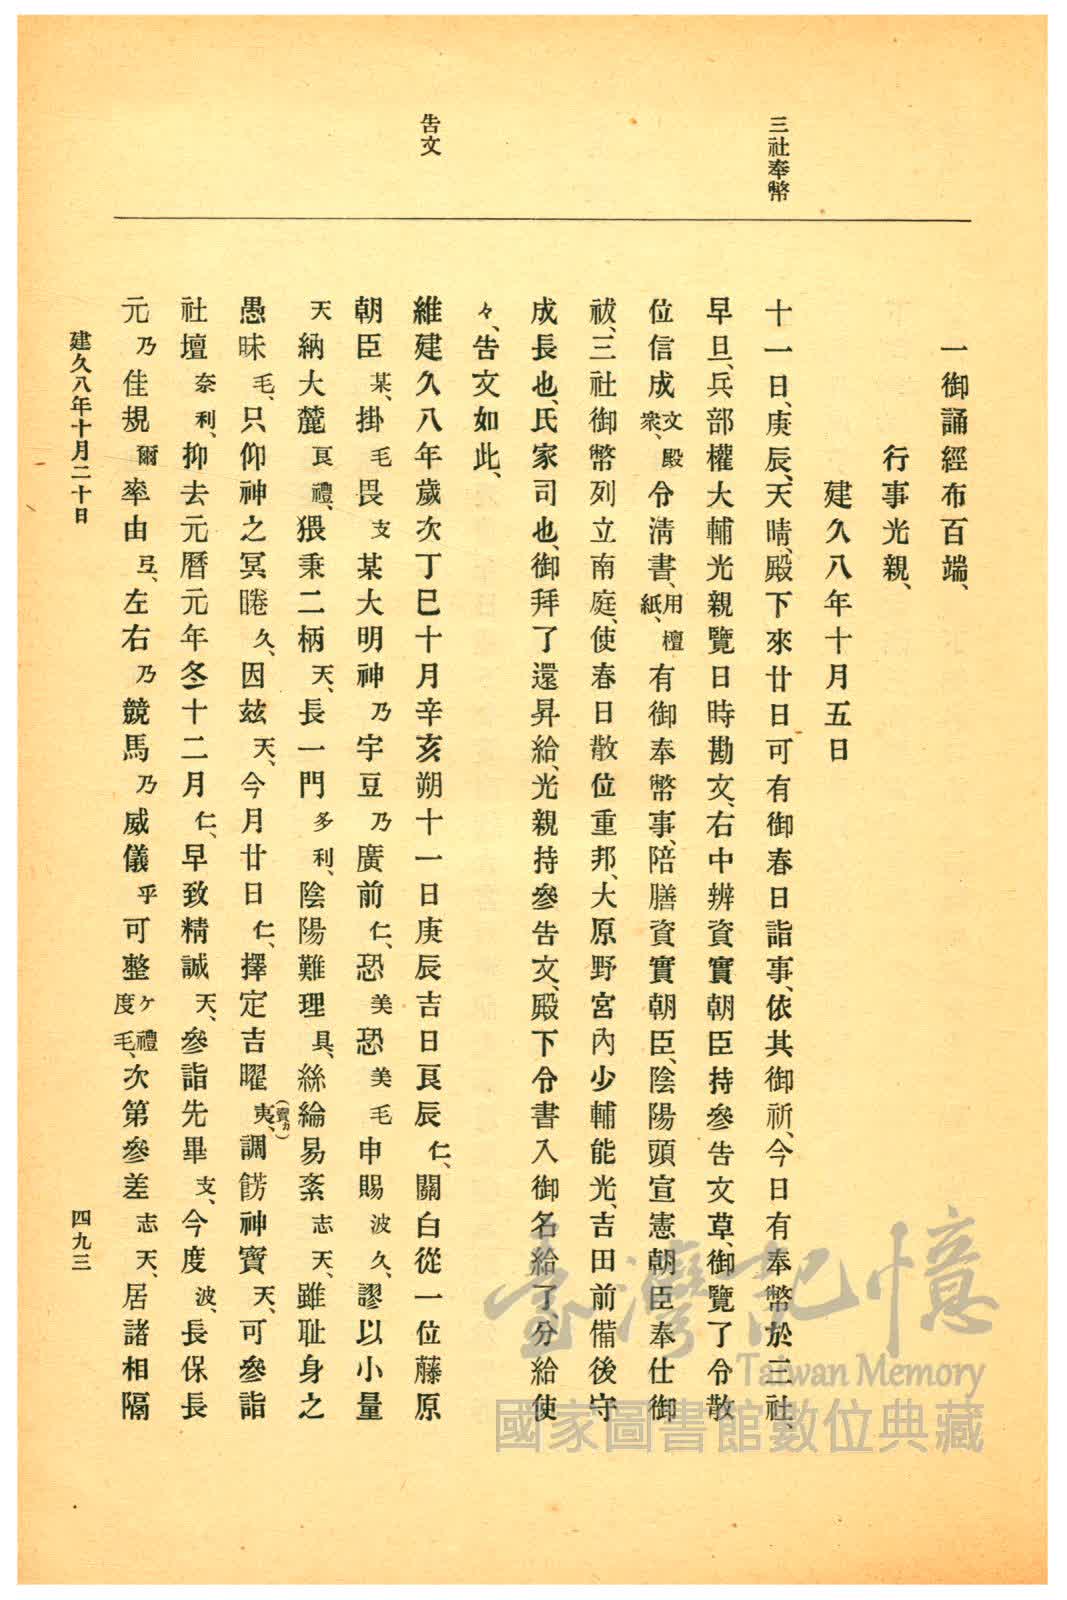 三社奉幣
告文
一御誦經布百端、
行事光親、
建久八年十月五日
十一日、庚辰、天晴、殿下來廿日可有御春日詣事、依其御祈、今日有奉幣於三社、
早旦、兵部權大輔光親覽日時勘文、右中辨資實朝臣持參告文草、御覽了令散
位信成文殿衆、令淸書、用檀紙、有御奉幣事、陪膳資實朝臣、陰陽頭宣憲朝臣奉仕御
祓、三社御幣列立南庭、使春日散位重邦、大原野宮內少輔能光、吉田前備後守
成長也、氏家司也、御拜了還昇給、光親持參告文、殿下令書入御名給了分給使
々、告文如此、
維建久八年歲次丁巳十月辛亥朔十一日庚辰吉日良辰仁、關白從一位藤原
朝臣某、掛毛畏支某大明神乃宇豆乃廣前仁、恐美恐美毛申賜波久、謬以小量
天納大麓良禮、猥秉二柄天、長一門多利、陰陽難理具、絲綸易紊志天、雖耻身之
愚昧毛、只仰神之冥睠久、因玆天、今月廿日仁、擇定吉曜夷、(賣カ)調餝神寶天、可參詣
社壇奈利、抑去元曆元年冬十二月仁、早致精誠天、參詣先畢支、今度波、長保長
元乃佳規爾率由豆、左右乃競馬乃威儀乎可整ケ禮度毛、次第參差志天、居諸相隔
建久八年十月二十日
四九三
臺灣記憶
Taiwan Memory
國家圖書館數位典藏